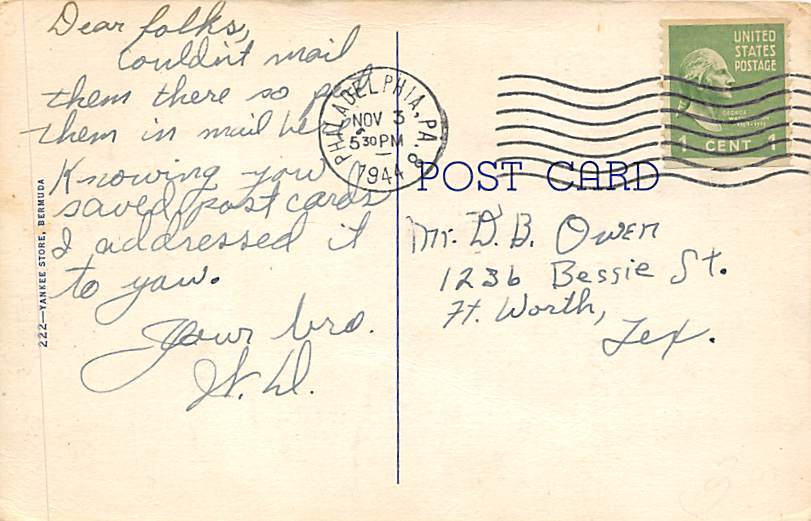 Dear folks,
Couldn't mail
them there so put
them in mail here.
Knowing you
saved post cards
I addressed it
to yaw.
Your bro.
W. D.
222—YANKEE STORE, BERMUDA
PHILADELPHIA, PA. 8
NOV 3
5 30 PM
1944
UNITED
STATES
POSTAGE
GEORGE
1 CENT 1
POST CARD
Mr. D. B. Owen
1236 Bessie St.
Ft. Worth,
Tex.